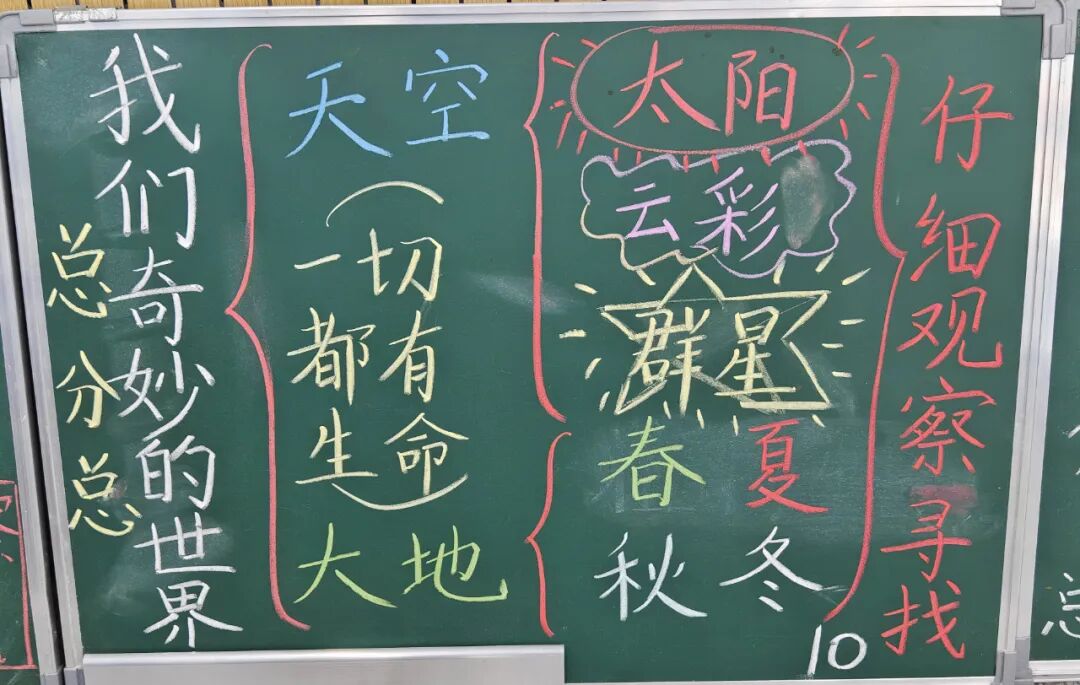 总分总
我们奇妙的世界
天空
（一切
都有
生命）
大地
太阳
云彩
群星
春 夏
秋 冬
仔细观察寻找
10